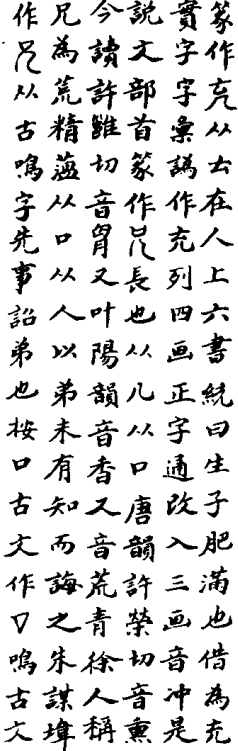 篆作充从𠫓在人上六書統曰生子肥滿也借為充
實字字彙譌作充列四画正字通改入三画音冲是
說文部首篆作兄長也从儿从口唐韻許榮切音熏
今讀許雖切音胷又叶陽韻音香又音荒青徐人稱
兄為荒精薀从口从人以弟未有知而誨之朱謀㙔
作兄从古鳴字先事詔弟也按口古文作▽鳴古文